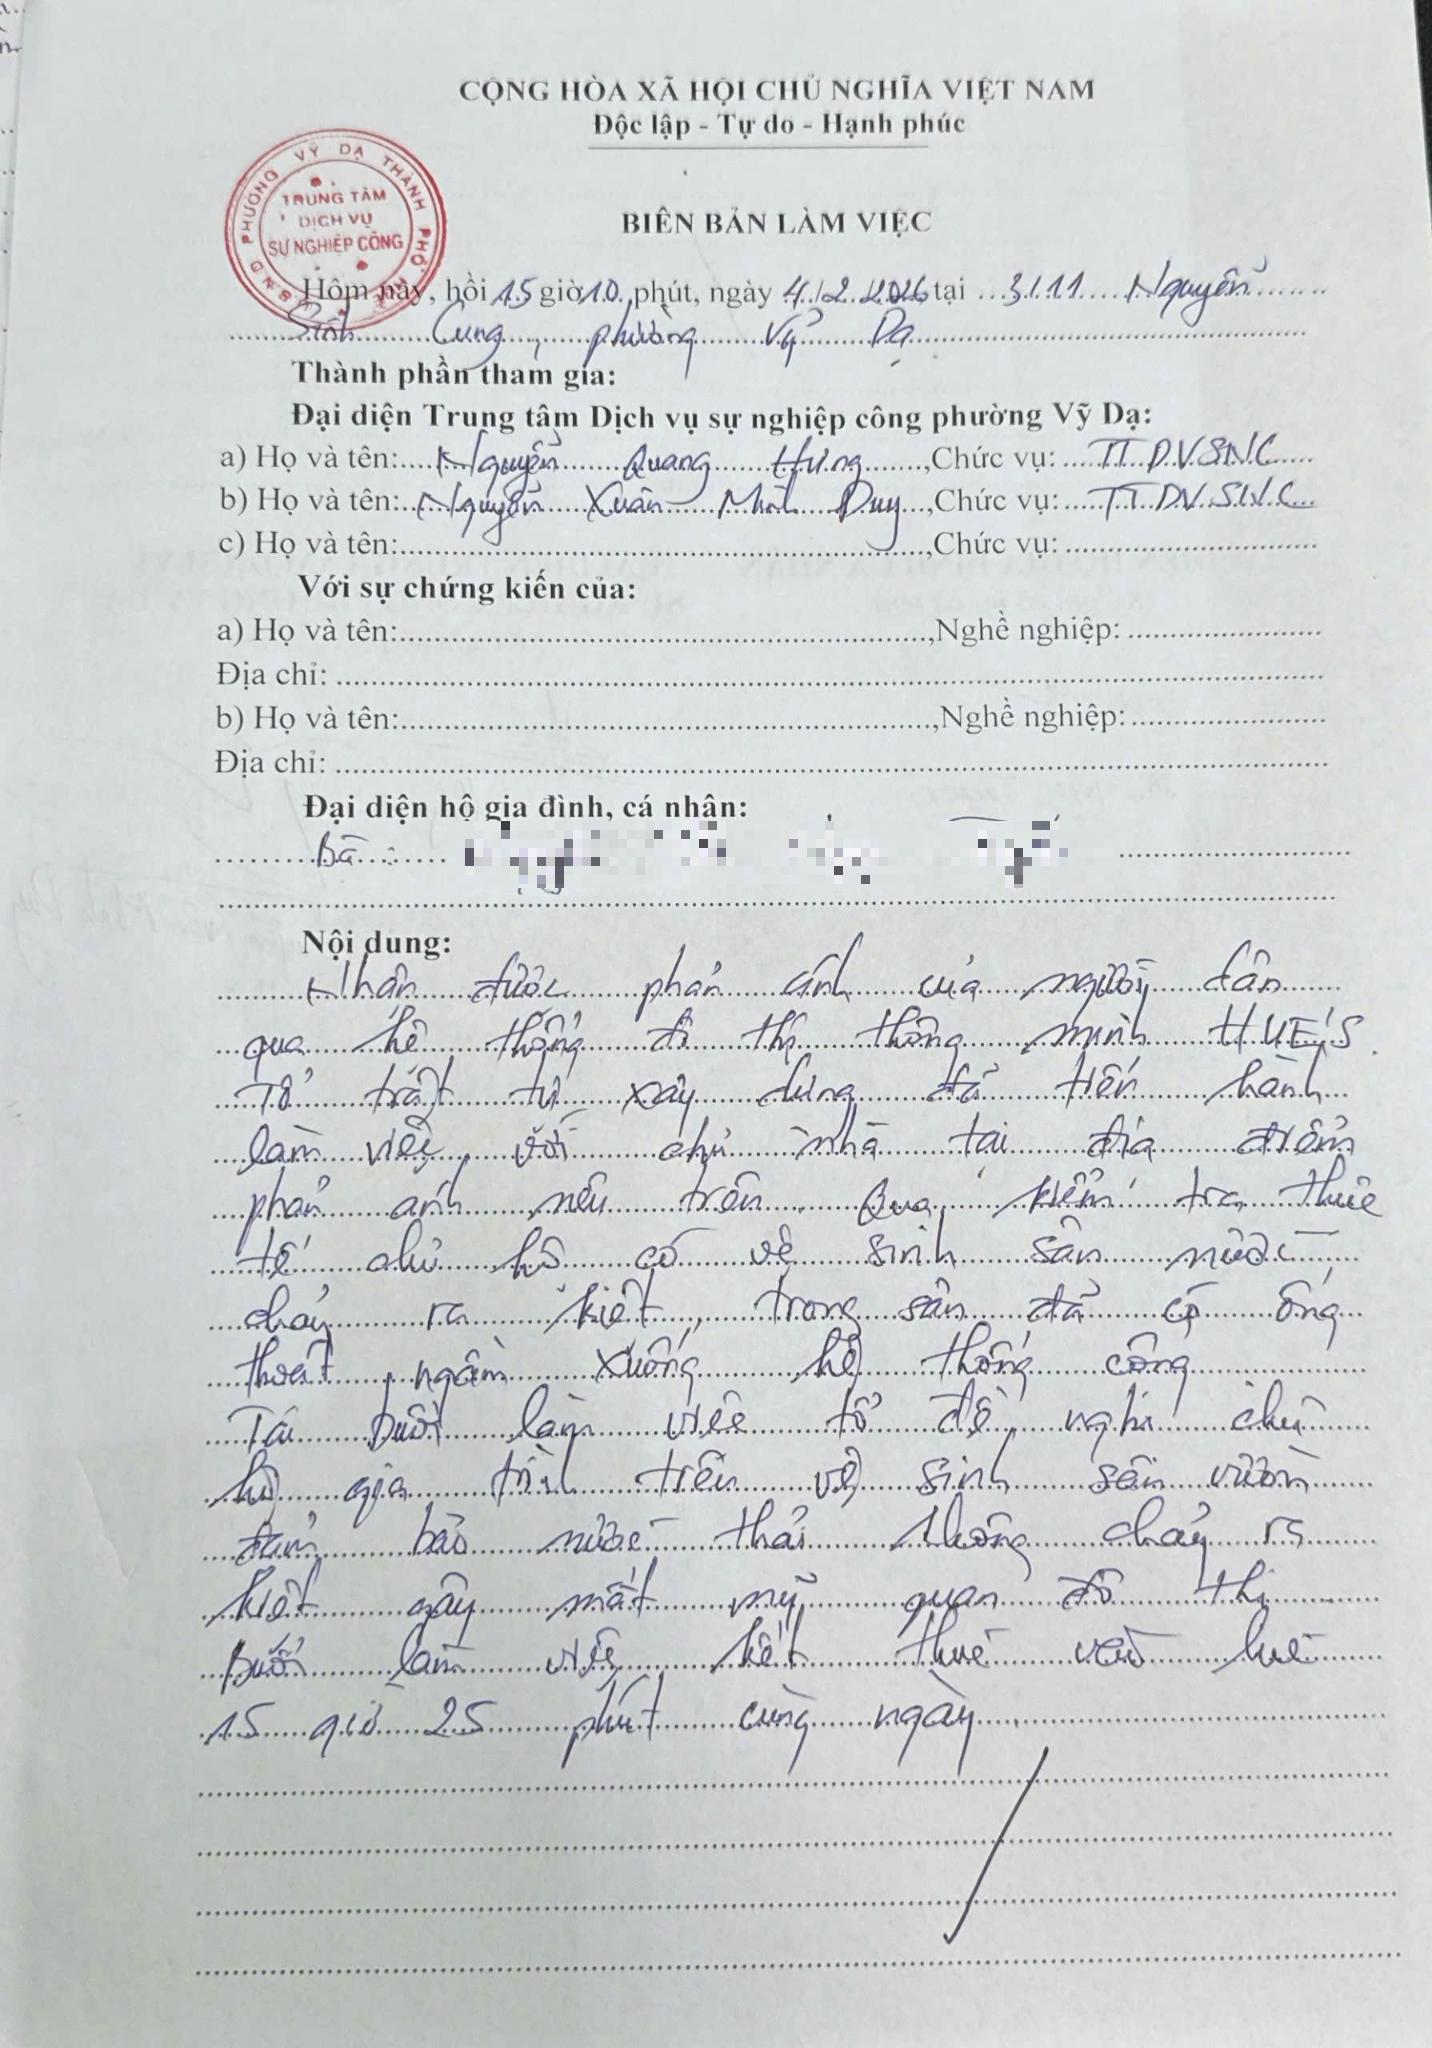 CỘNG HÒA XÃ HỘI CHỦ NGHĨA VIỆT NAM
Độc lập - Tự do - Hạnh phúc
U.B.N.D PHƯỜNG VỸ DẠ THÀNH PHỐ HUẾ
TRUNG TÂM
DỊCH VỤ
SỰ NGHIỆP CÔNG
BIÊN BẢN LÀM VIỆC
Hôm nay, hồi 15 giờ 10 phút, ngày 4/2/2026 tại 3/11 Nguyễn
Sinh Cung, phường Vỹ Dạ
Thành phần tham gia:
Đại diện Trung tâm Dịch vụ sự nghiệp công phường Vỹ Dạ:
a) Họ và tên: Nguyễn Quang Hưng, Chức vụ: TT DVSNC
b) Họ và tên: Nguyễn Xuân Minh Duy, Chức vụ: TT DVSNC
c) Họ và tên:, Chức vụ:
Với sự chứng kiến của:
a) Họ và tên:, Nghề nghiệp:
Địa chỉ:
b) Họ và tên:, Nghề nghiệp:
Địa chỉ:
Đại diện hộ gia đình, cá nhân:
Bà:
Nội dung:
Nhận được phản ánh của người dân
qua hệ thống đô thị thông minh HUE'S.
Tổ trật tự xây dựng đã tiến hành
làm việc với chủ nhà tại địa điểm
phản ánh nêu trên. Qua kiểm tra thực
tế chủ hộ có vệ sinh sân nước
chảy ra kiệt, trong sân đã có ống
thoát ngầm xuống hệ thống cống
Tại buổi làm việc tổ đề nghị chủ
hộ gia đình trên vệ sinh sân vườn
đảm bảo nước thải không chảy ra
kiệt gây mất mỹ quan đô thị
Buổi làm việc kết thúc vào lúc
15 giờ 25 phút cùng ngày